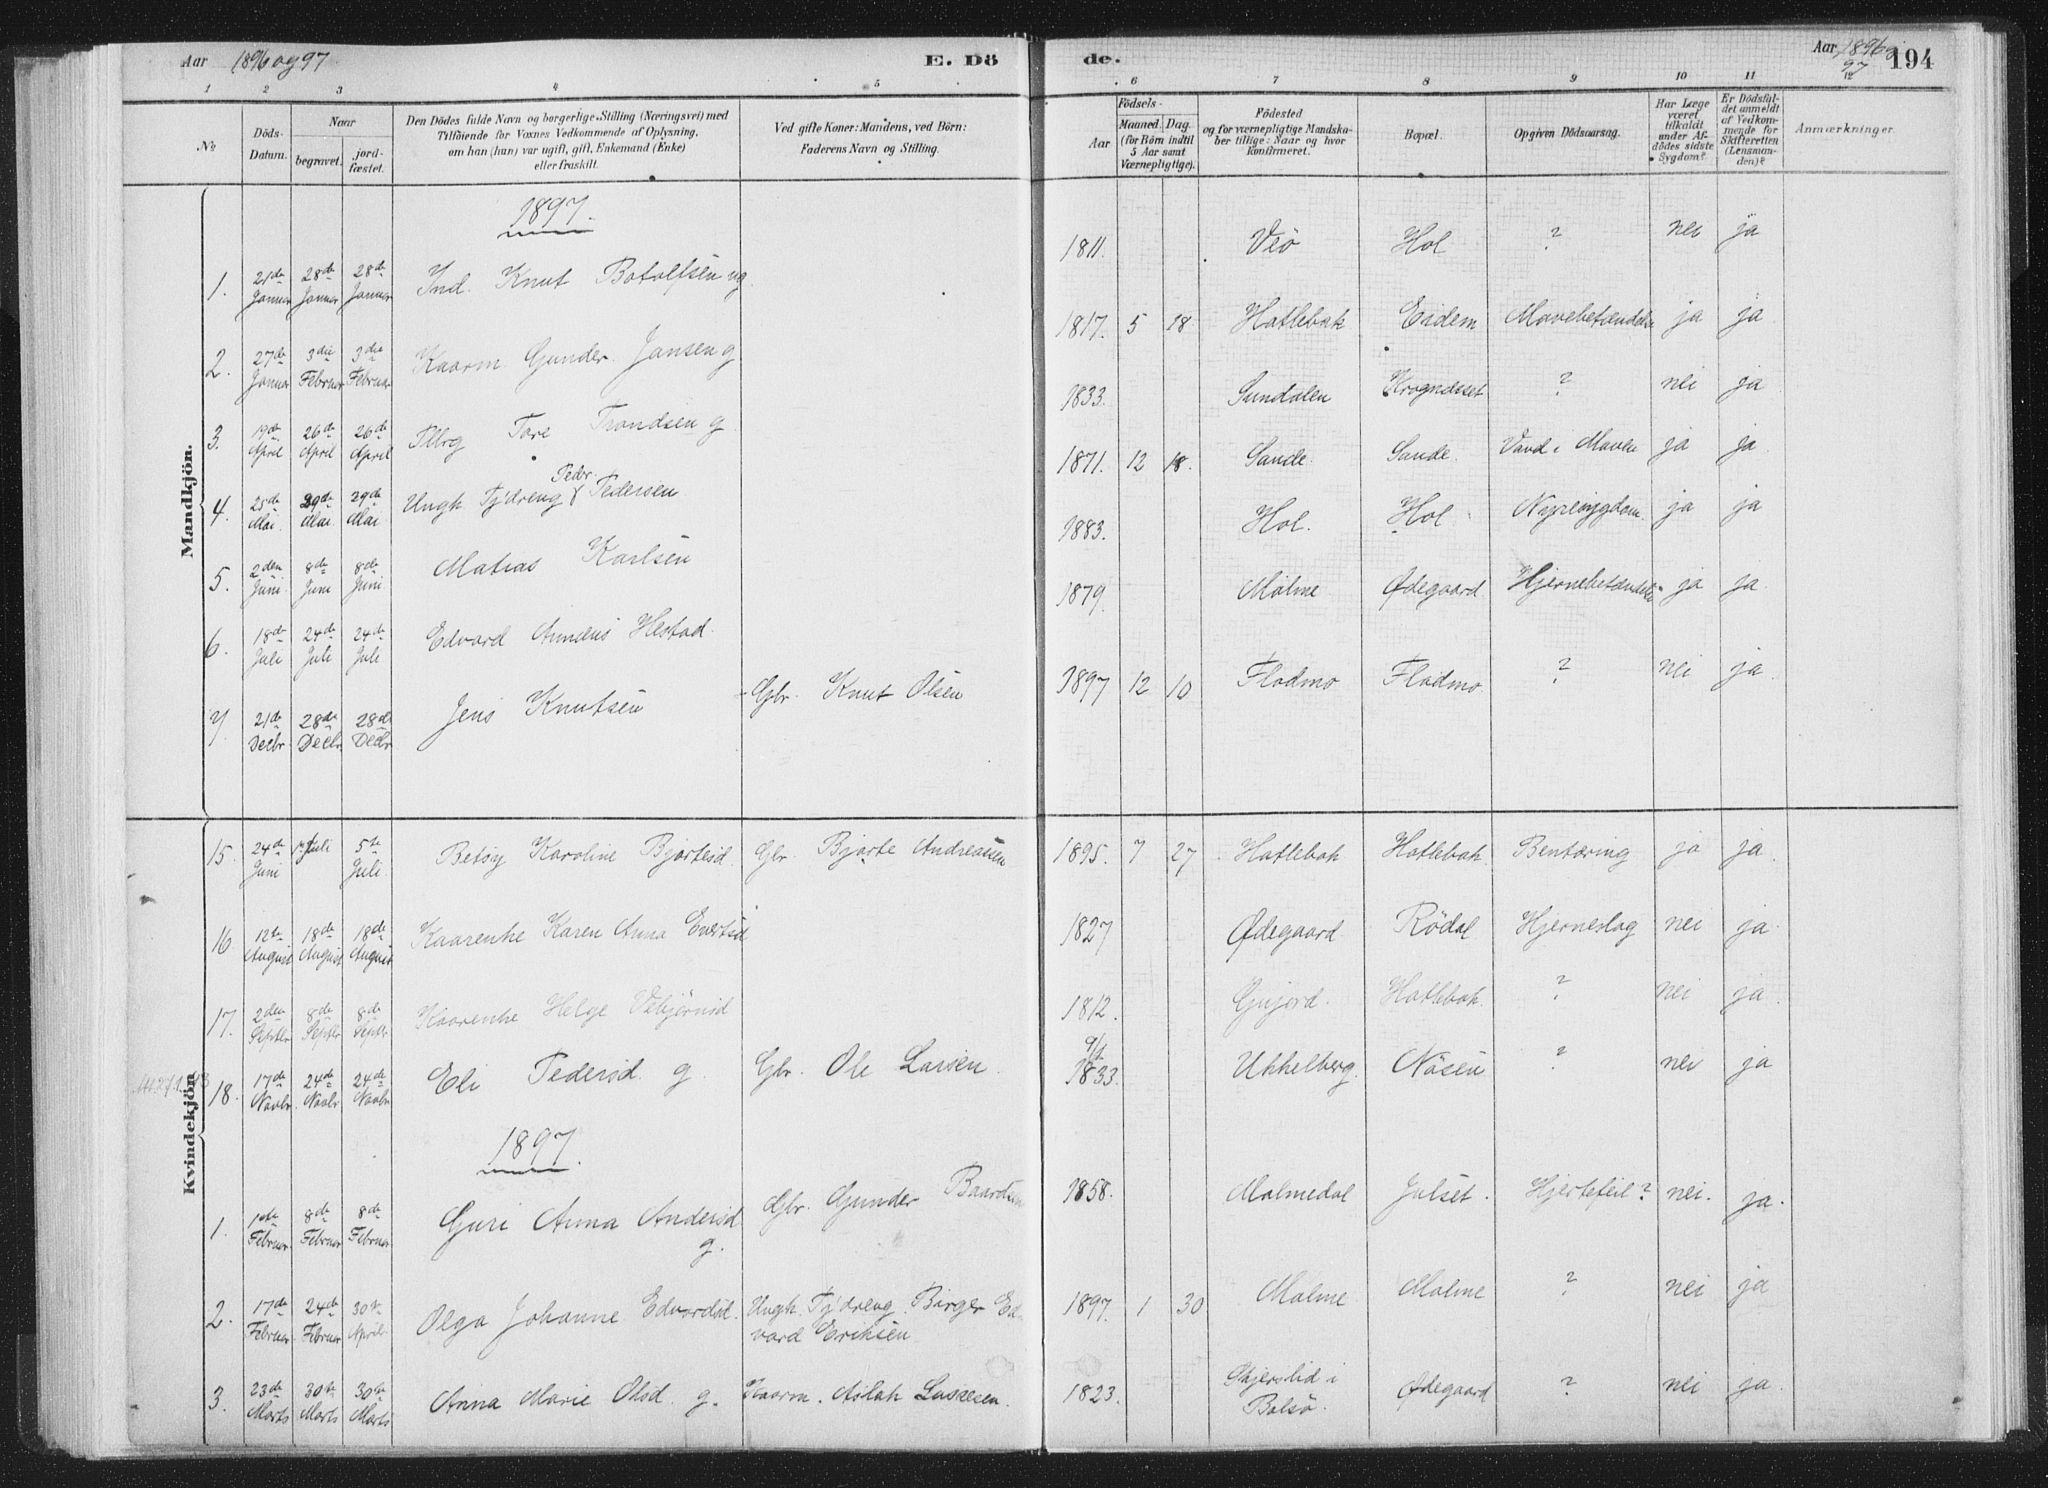 Aar 1896 og 97
E. Dö
de.
Aar 1896 og 97
194
1 2 3 4 5 6 7 8 9 10 11 12
No
Döds-Datum.
Naar
begravet.
jordfæstet.
Den Dödes fulde Navn og borgerlige Stilling (Næringsvei) med
Tilföiende for Voxnes Vedkommende af Oplysning,
om han (hun) var ugift, gift, Enkemand (Enke)
eller fraskilt.
Ved gifte Koner: Mandens, ved Börn:
Faderens Navn og Stilling.
Födsels-
Aar
Maaned. Dag
(for Börn indtil
5 Aar samt
Værnepligtige).
Födested
og for værnepligtige Mandska-
ber tillige: Naar og hvor
konfirmeret.
Bopæl.
Opgiven Dödsaarsag.
Har Læge
været
tilkaldt
under Af-
dödes sidste
Sygdom?
Er Dödsfal-
det anmeldt
af Vedkom-
mende for
Skifteretten
(Lensman-
den)?
Anmærkninger.
Mandkjön.
1897.
1. 21de Januar 28de Januar 28de Januar Ind. Knut Botolfsen ug 1811. Veö Hol ? nei ja
2. 27de Januar 3die Februar 3die Februar Kaarm. Gunder Jansen g 1817. 5 18. Hatlebak Eidem Mavebetændelse ja ja
3. 19de April 26de April 26de April Tore Trondsen g 1833. Sundalen Krognesset ? nei ja
4. 25de Mai. 29de Mai. 29de Mai Ungk Tj'dreng Peder Pedersen 1871. 12 18. Sande. Sande. Vand i Maven ja ja.
5. 2den Juni. 8de Juni 8de Juni Matias Karlsen 1883. Hol. Hol Nyresygdom. ja ja
6. 18de Juli 24de Juli 24de Juli Edvard Annæus Hestad. 1879. Malme Ødegaard Hjernebetændelse ja ja.
7. 21de Decbr. 28de Decbr 28de Decbr Jens Knutsen Gbr. Knut Olsen 1897 12 10 Flodmo Flodmo ? nei ja.
Kvindekjön
15. 24de Juni Juli 5te Juli Betsy Karoline Bjartesd. Gbr. Bjarte Andreassen 1895. 7 27 Hatlebak Hatlebak. Bentæring ja ja.
16 12te August 18de August 18de August Kaarenke Karen Anna Evertsd 1827 Ødegaard Rödal Hjerneslag nei ja.
17. 2den Septbr 8de Septbr 8de Septbr Kaarenke Helge Vebjörnsd 1812. Gujord. Hatlebak. ? nei ja.
18. 17de Novbr. 24de Novbr 24de Novbr Eli Pedersd. g. Gbr. Ole Larsen. 9/1 1833. Ukkelberg. Näsen ? nei ja
1897.
1. 1ste Februar. 8de Februar 8de Februar Guri Anna Andersd g. Gbr. Gunder Baardsen 1858. Malmedal Julset. Hjertefeil? nei. ja.
2. 17de Februar 24de Februar 30te April Olga Johanne Edvardsd. Ungk. Tj'dreng. Birger Edvard Eriksen 1897. 1 30 Malme. Malme ? nei ja
3. 23de Marts 30te Marts 30te Marts Anna Marie Olsd. g. Kaarm. Aslak Lassesen. 1823. Skjerslid i Bolsö. Ødegaard ? nei ja.